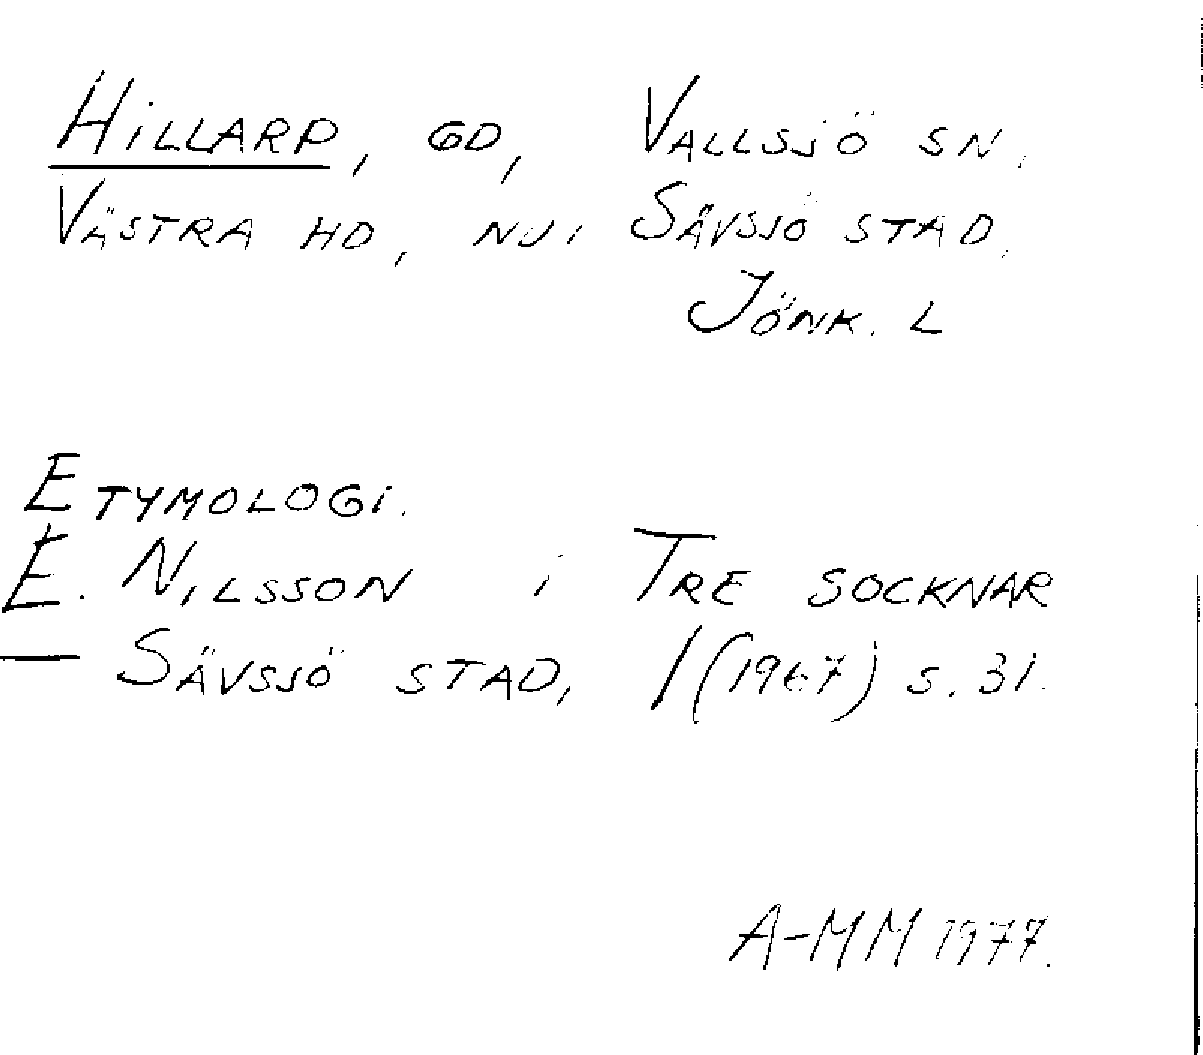 HiLLARP, GD, VALLSJÖ SN,
VÄSTRA HD, NU: SÄVSJÖ STAD,
JÖNK. L
ETYMOLOGi.
E. NILSSON i TRE SOCKNAR
— SÄVSJÖ STAD, 1 (1967) s. 31.
A-MM 1977.